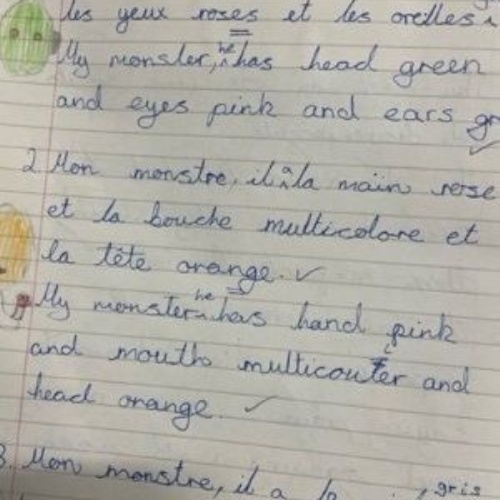 les yeux roses et les oreilles
My monster, he has head green
and eyes pink and ears gr
2 Mon monstre, il a la main rose
et la bouche multicolore et
la tête orange. ✓
My monster he has hand pink
and mouth and
head orange. ✓
3. Mon monstre, il a gris